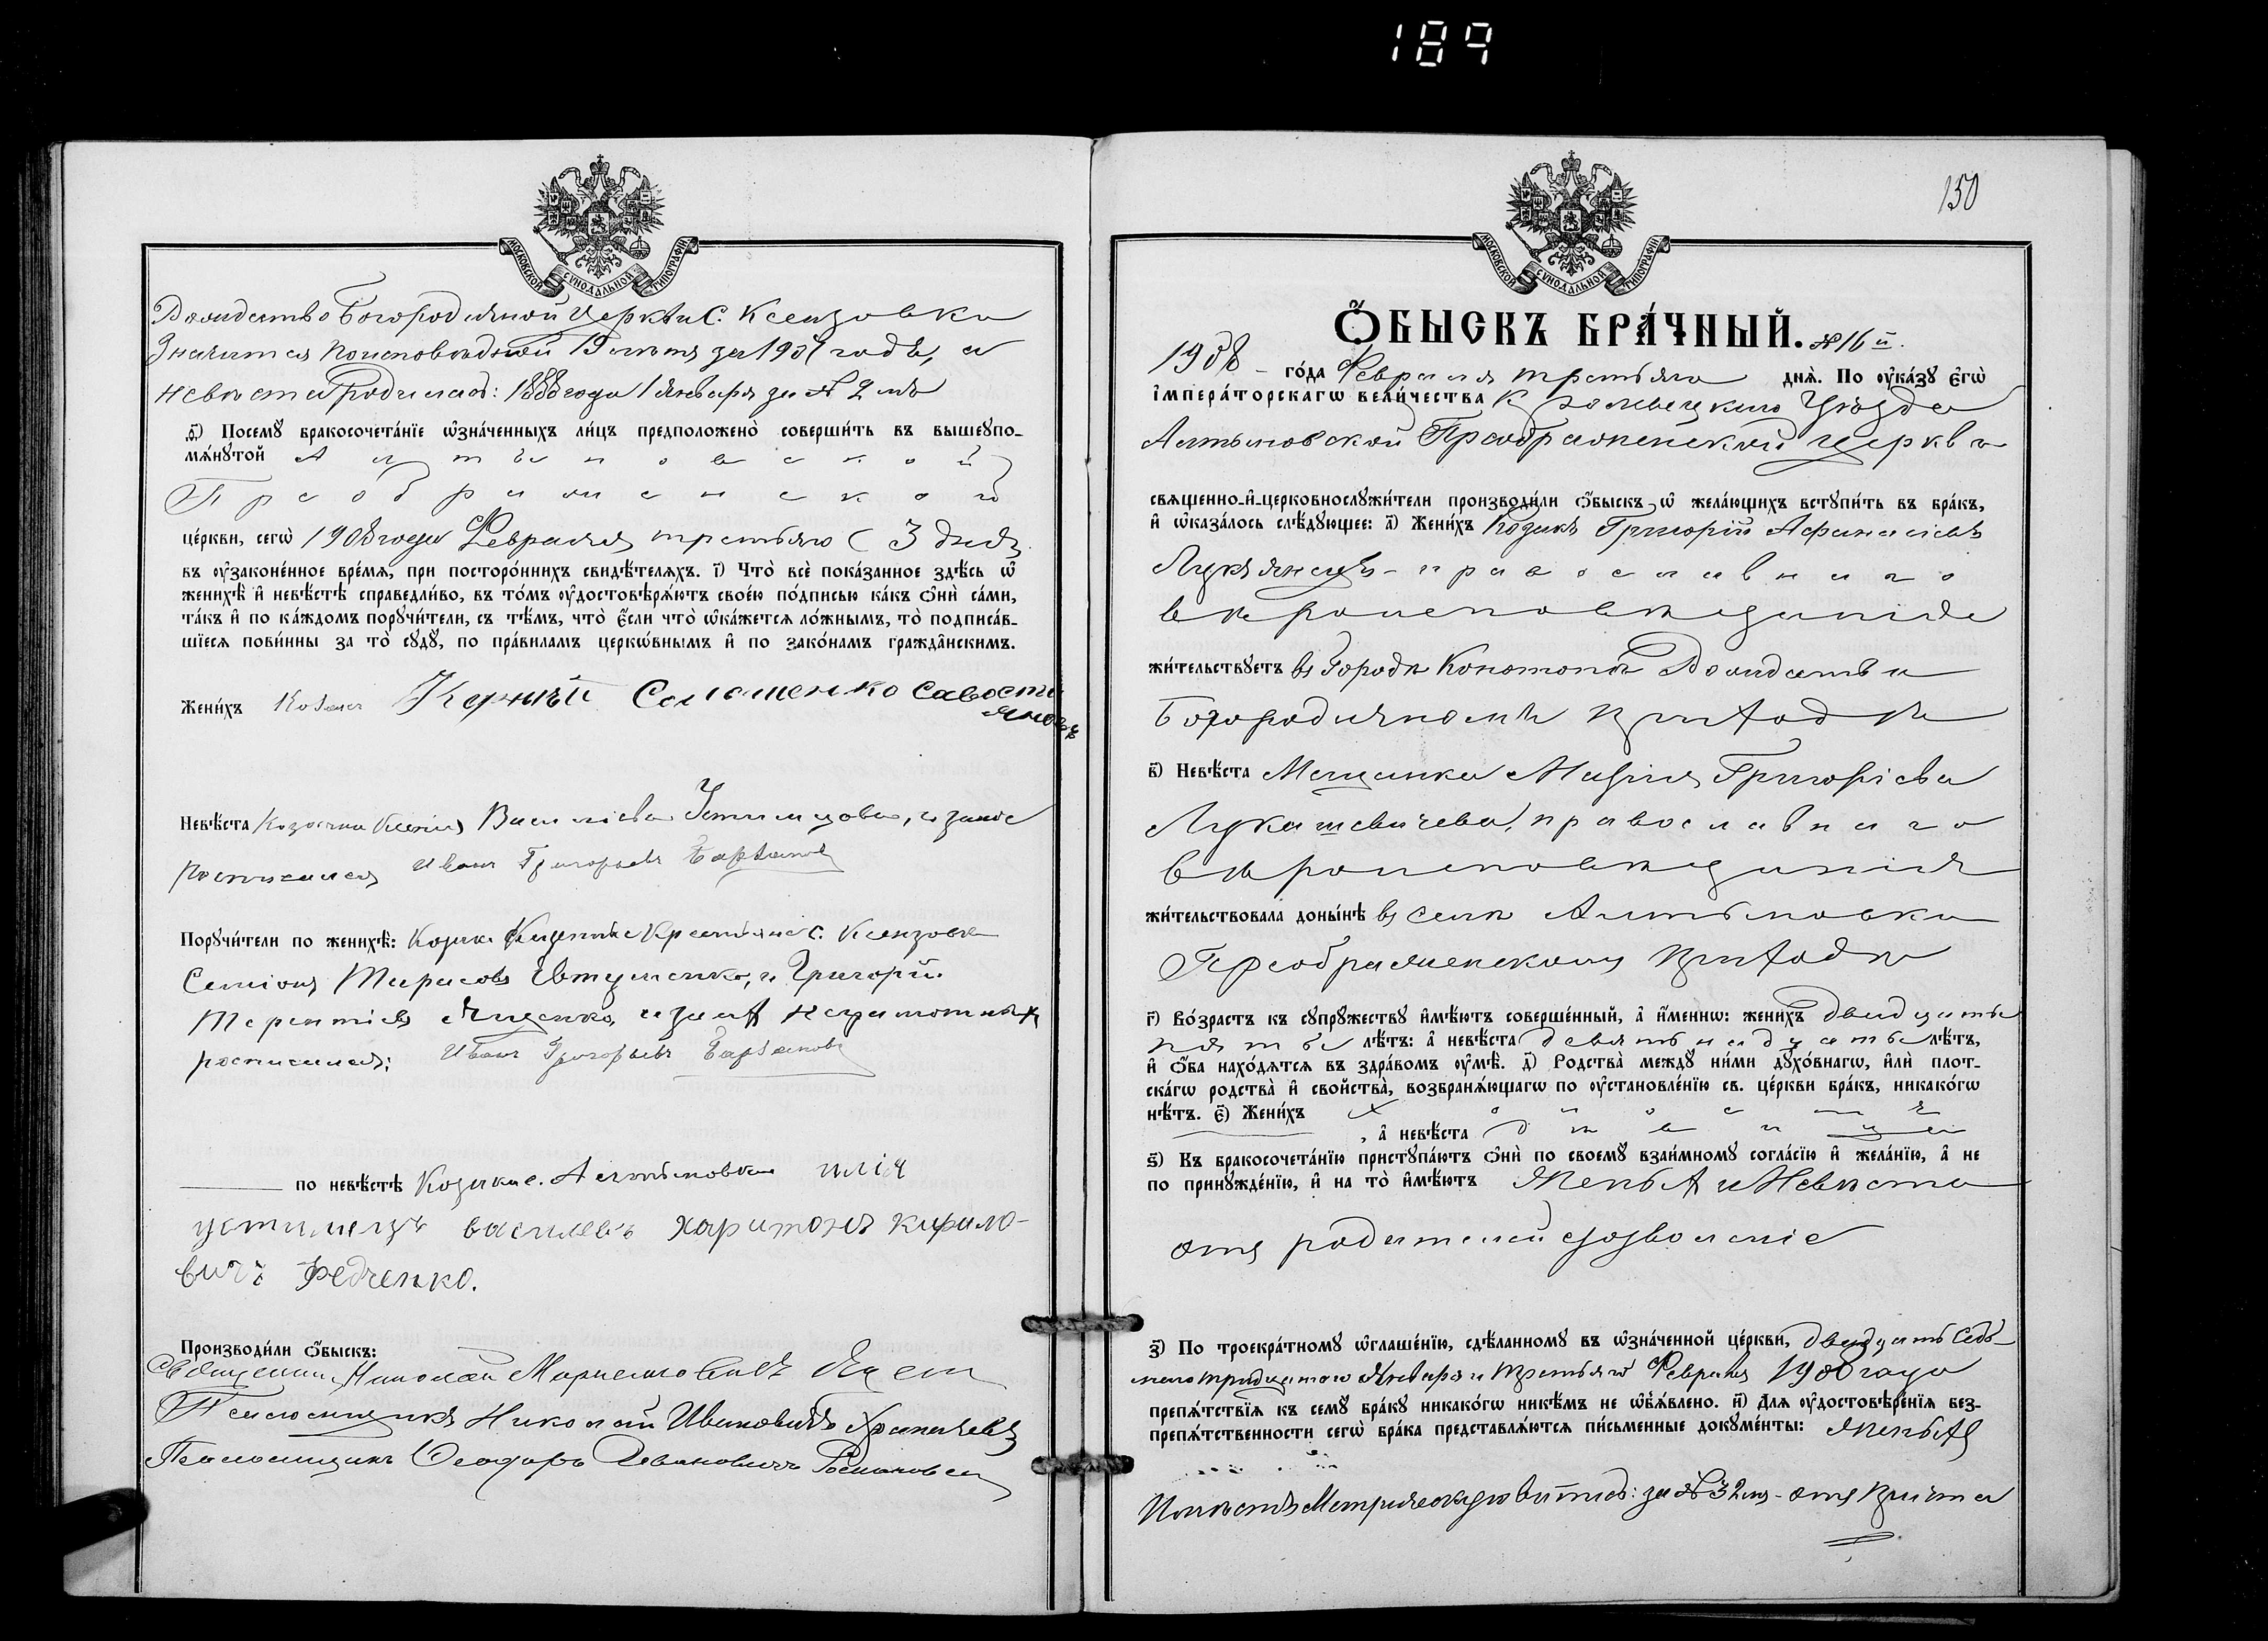 189
МОСКОВСКОЙ СѴНОДАЛЬНОЙ ТИПОГРАФІИ
Рождество Богородичной церкви С. Ксензовки
Значится по исповѣдной 19 лѣтъ за 190 годъ, а
невѣста Родилась: 1888 года 1 января за № 2 мъ
ѳ҃) Посемꙋ бракосочета́нїе ѡ҆зна́ченныхъ ли́цъ предположено̀ соверши́ть въ вышеꙋпо-
мѧ́нꙋтой Алтыновской
Преображенской
це́ркви, сегѡ̀ 1908 года Февраля третьяго (3 дня
въ ᲂу҆зако́не́нное вре́мѧ, при посторо́ннихъ свидѣ́телѧхъ. і҃) Что̀ всѐ пока́занное здѣ́сь ѡ҆
женихѣ̀ и҆ невѣ́стѣ справедли́во, въ то́мъ ᲂу҆достовѣрѧ́ютъ свое́ю по́дписью ка́къ ѻ҆нѝ са́ми,
та́къ и҆ по ка́ждомъ порꙋчи́тели, съ тѣ́мъ, что̀ є҆́сли что̀ ѡ҆ка́жетсѧ ло́жнымъ, то̀ подписа́в-
шїесѧ пови́нны за то̀ сꙋдꙋ̀, по пра́виламъ церкѡ́внымъ и҆ по зако́намъ гражда̑нскимъ.
Жени́хъ Козакъ Соломенко Савостi
яновъ
Невѣ́ста Козачка Ксенія Василіева Устимцова, и занее
росписался Иванъ Григорьевъ
Порꙋчи́тели по женихѣ̀: Козаки с. Ксензовки
Семіонъ Тарасовъ Евтушенко, и Григорій
Терентіевъ Яценко, и за их неграмотныхъ
росписался: Иванъ Григорьевъ
по невѣ́стѣ Козаки с. Алтыновки илія
устимецъ василевъ харитонъ кирило-
вичъ Федченко.
Производи́ли ѻ҆́быскъ:
Священник Николай
Псаломщикъ Николай Ивановичъ
Псаломщикъ Ѳеодоръ Ивановичъ
150
МОСКОВСКОЙ СѴНОДАЛЬНОЙ ТИПОГРАФІИ
Ѻ҆́БЫСКЪ БРА́ЧНЫЙ. № 16 й.
1908 го́да Февраля третьяго днѧ̀. По ᲂу҆ка́зꙋ є҆гѡ̀
і҆мпера́торскагѡ вели́чества Кролевецкаго Уѣзда
Алтыновской Преображенской церкви
свѧщенно-и҆-церковнослꙋжи́тели производи́ли ѻ҆́быскъ ѡ҆ жела́ющихъ встꙋпи́ть въ бра́къ,
и҆ ѡ҆каза́лось слѣ́дꙋющее: а҃) Жени́хъ Козакъ Григорій Афанасіевъ
Лукьянецъ - православнаго
вѣроисповѣданія
жи́тельствꙋетъ въ Городѣ Конотопѣ Рождества
Богородичномъ приходѣ
в҃) Невѣ́ста Мещанка Марія Григоріева
Лукашевичева, православнаго
вѣроисповѣданія
жи́тельствовала донꙑ́нѣ въ селѣ Алтыновки
Преображенскому приходѣ
г҃) Во́зрастъ къ сꙋпрꙋ́жествꙋ и҆мѣ́ютъ соверше́нный, а҆ и҆́меннѡ: жени́хъ двадцать
пять лѣ́тъ: а҆ невѣ́ста девятьнадцать лѣ́тъ,
и҆ ѻ҆́ба нахо́дѧтсѧ въ здра́вомъ ᲂу҆мѣ̀. д҃) Родства̀ междꙋ̀ ни́ми дꙋхо́внагѡ, и҆лѝ плот-
ска́гѡ родства̀ и҆ свойства̀, возбранѧ́ющагѡ по ᲂу҆становле́нїю св. це́ркви бра́къ, никако́гѡ
нѣ́тъ. є҃) Жени́хъ холостъ
, а҆ невѣ́ста дѣвица
ѕ҃) Къ бракосочета́нїю пристꙋпа́ютъ ѻ҆нѝ по своемꙋ̀ взаи́мномꙋ согла́сїю и҆ жела́нїю, а҆ не
по принꙋжде́нїю, и҆ на то̀ и҆мѣ́ютъ Женьхъ и Невѣста
отъ родителей созволеніе
з҃) По троекра́тномꙋ ѡ҆глаше́нїю, сдѣ́ланномꙋ въ ѡ҆зна́ченной це́ркви, двадцать седь-
маго тридцатаго Января и третьяго Февраля 1908 года
препѧ́тствїѧ къ семꙋ̀ бра́кꙋ никако́гѡ никѣ́мъ не ѡ҆бъѧ́влено. и҃) Длѧ ᲂу҆достовѣре́нїѧ без-
препѧ́тственности сегѡ̀ бра́ка представлѧ́ютсѧ пи́сьменные докꙋме́нты: Женьхъ
Метрическую выпись: за № 32 мъ - отъ причта